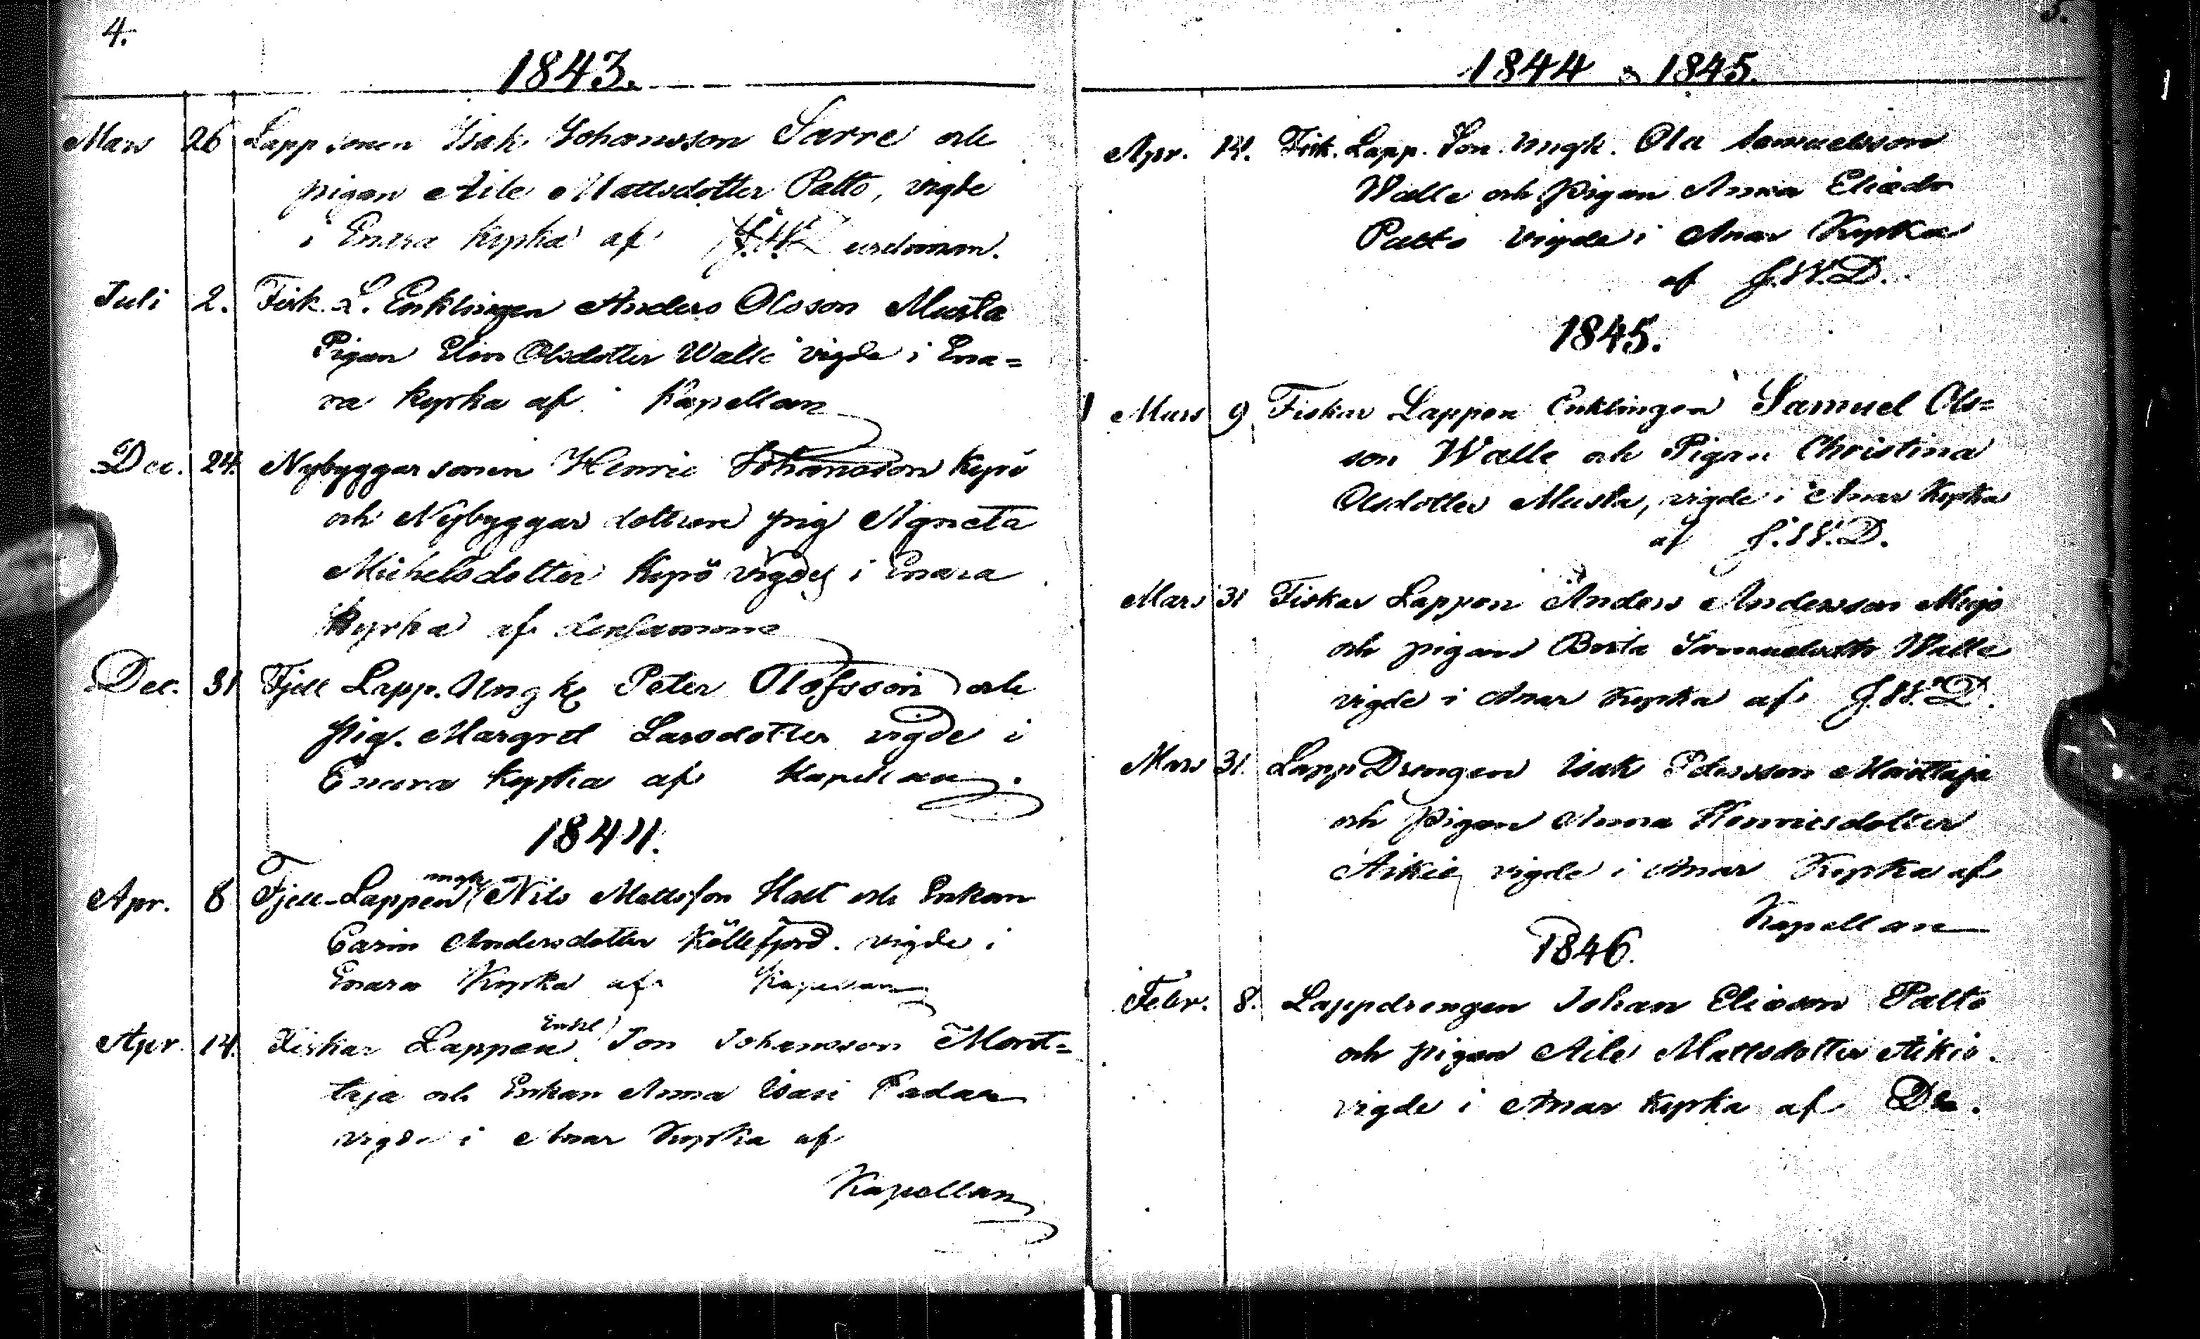 4.
1843.
Mars 26 Lappsonen Isak Johansson Sarre och
pigan Aile Mattsdotter Palto, vigde
i Enara kyrka af J. W. Durchman.
Juli 2. Fisk. L. Enklingen Anders Olsson Musta
Pigan Elin Olsdotter Walle vigde i Ena=
ra kyrka af Kapellan
Dec. 24. Nybyggarsonen Henric Johansson Kyrö
och Nybyggar dottren pig Agneta
Michelsdotter Kyrö vigdes i Enara
Kyrka af densamme
Dec. 31 Fjell Lapp. Ungk Peter Olofsson och
pig. Margret Larsdotter vigde i
Enara kyrka af Kapellan.
1844.
Apr. 8 Fjell-Lappen ungk Nils Mattsson Hatt och Enkan
Carin Andersdotter Köllefjord. vigde i
Enara Kyrka af Kapellan
Apr. 14. Fiskar Lappen Enkl Jon Johansson Morot=
taja och Enkan Anna Isaci Padar
vigde i Anar Kyrka af
Kapellan
5.
1844 & 1845.
Apr. 14. Fisk. Lapp. Son. Ungk. Ola Samuelsson
Walle och Pigan Anna Eliædr
Palto vigde i Anar Kyrka
af J. W. D.
1845.
Mars 9 Fiskar Lappen Enklingen Samuel Ols=
son Walle och Pigan Christina
Olsdotter Musta, vigde i Anar Kyrka
af J. W. D.
Mars 31 Fiskar Lappen Anders Andersson
och pigan Berta Samuelsdttr Walle
vigde i Anar kyrka af J. W. D.
Mars 31. Lapp Drengen Isak Pehrsson Morottaja
och Pigan Anna Henricsdotter
Aikie vigde i Anar Kyrka af
Kapellan
1846.
Febr. 8. Lappdrengen Johan Eliasson Palto
och pigan Aile Mattsdotter Aikio.
vigde i Anar kyrka af Dn.